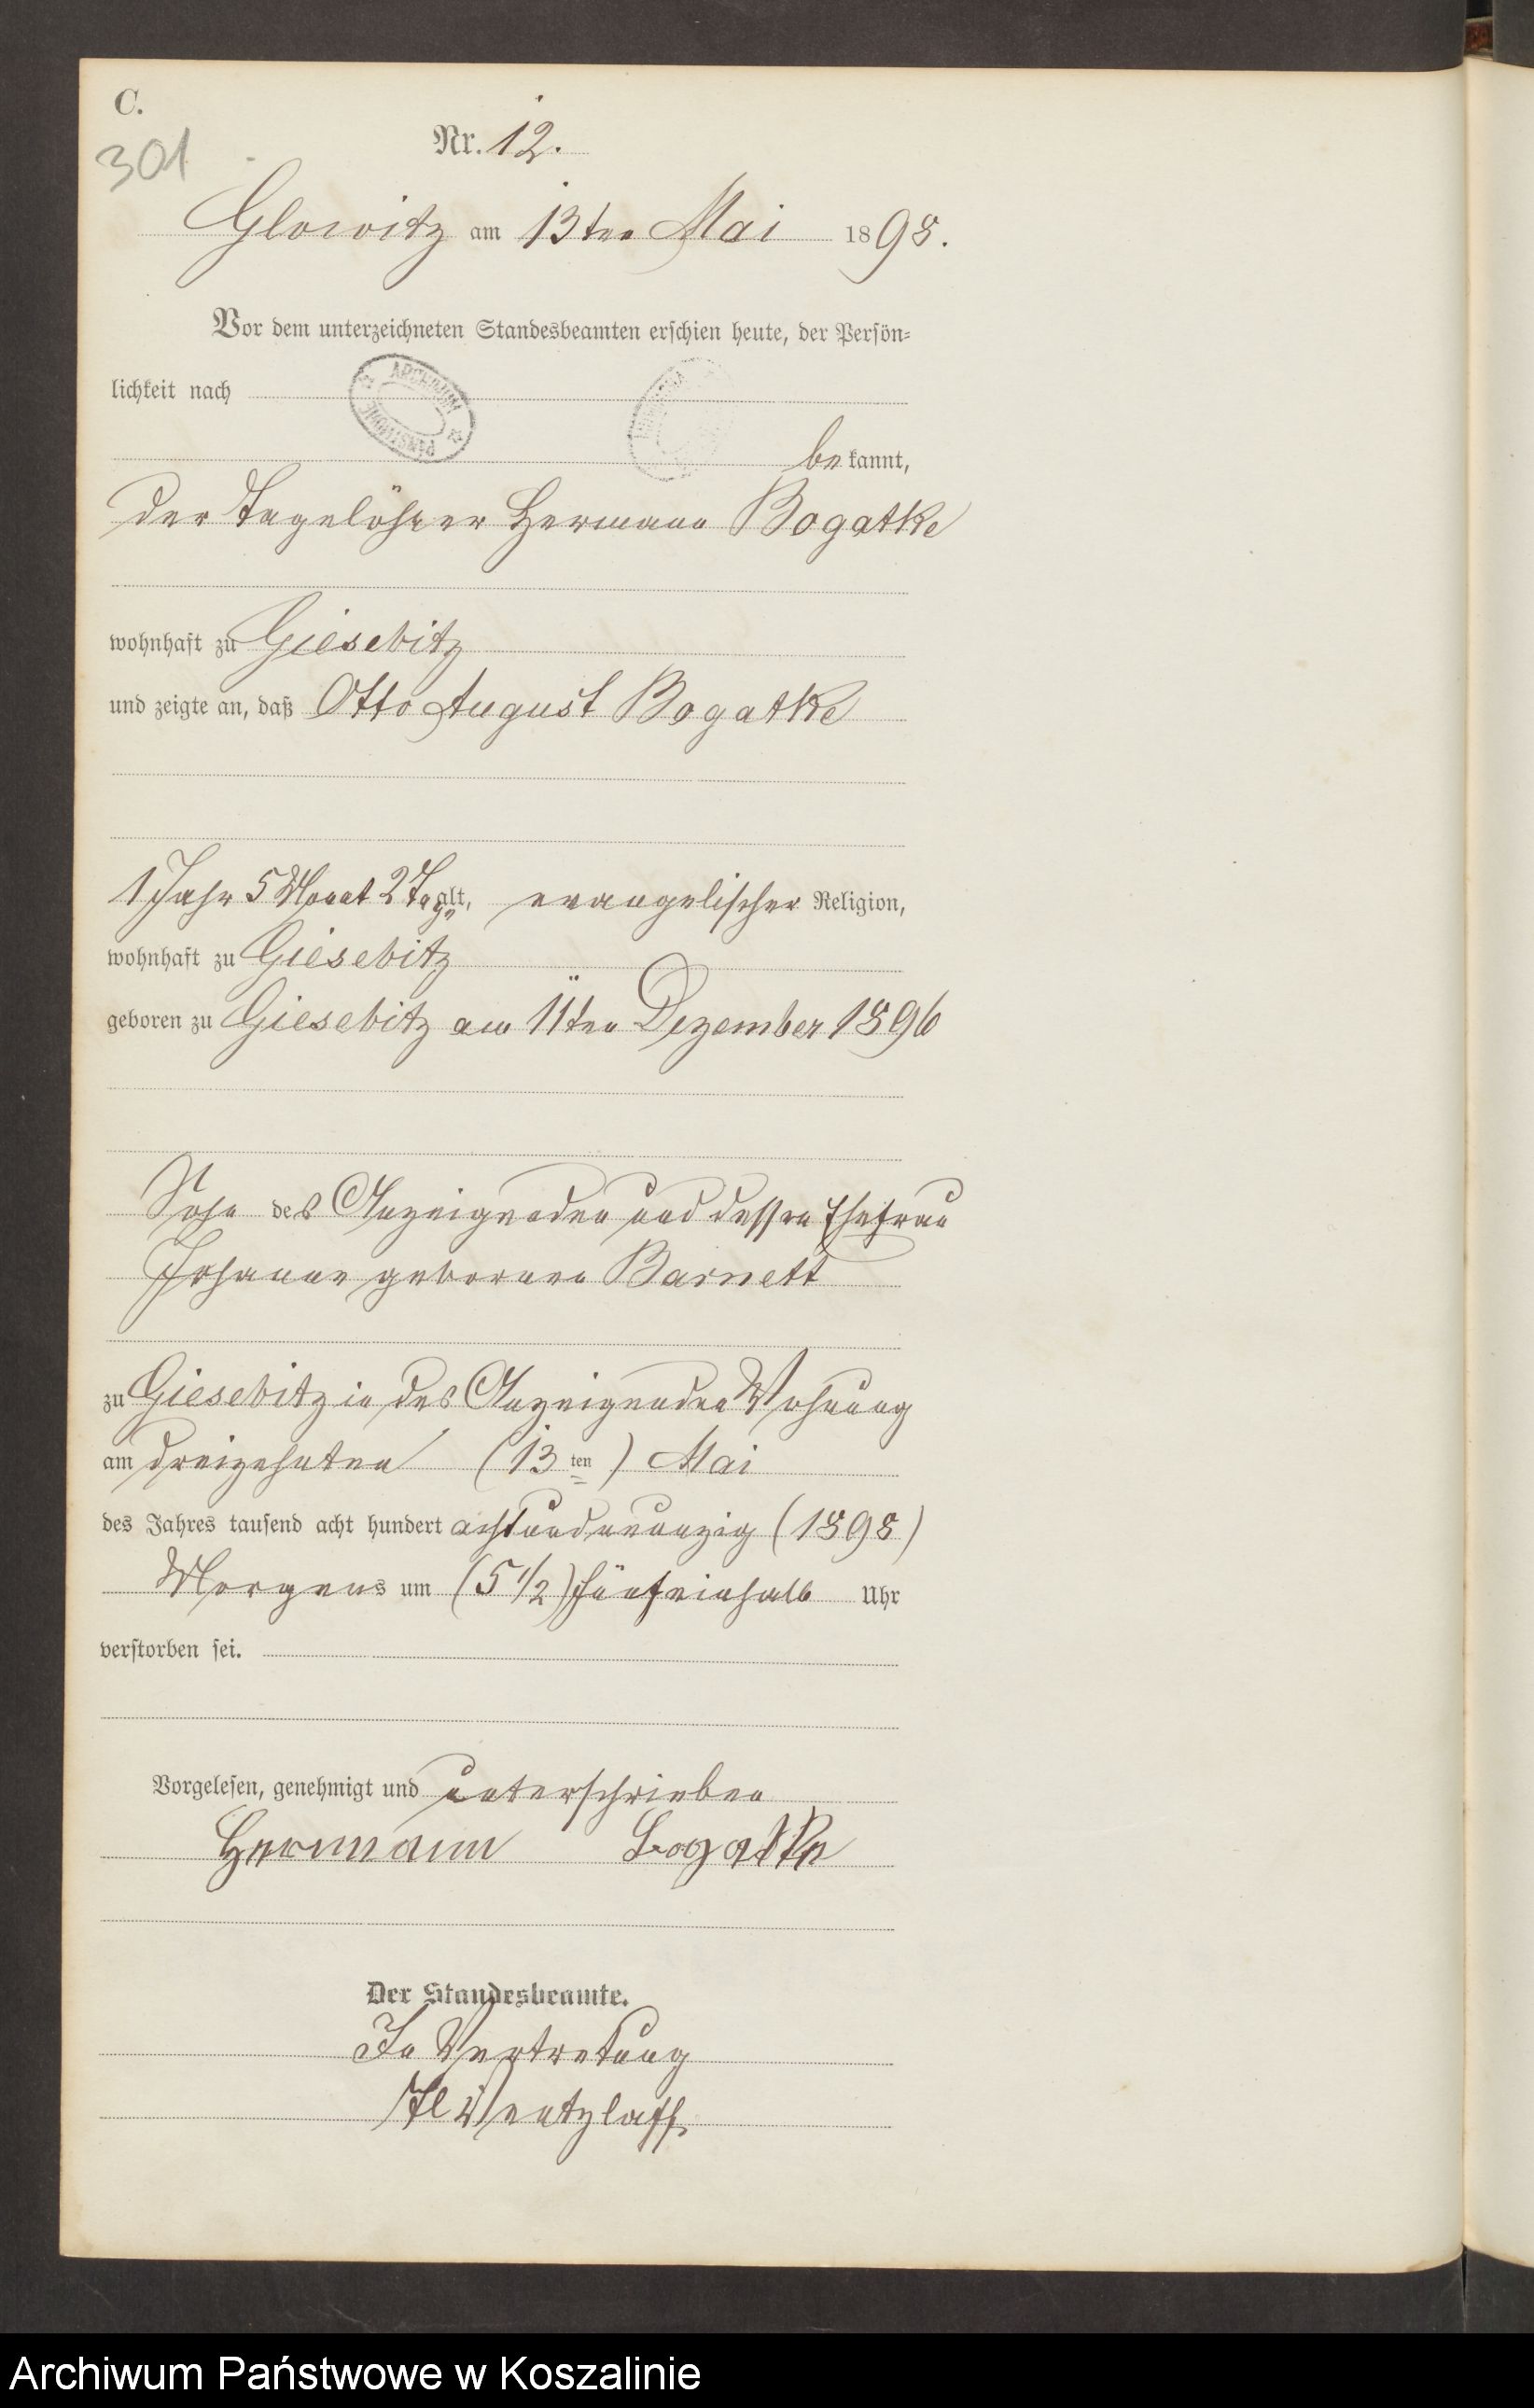 C.
301
Nr. 12.
Glowitz am 13ten Mai 1898.
Vor dem unterzeichneten Standesbeamten erschien heute, der Persön-
lichkeit nach
ARCHIWUM PAŃSTWOWE
bekannt,
der Tagelöhner Hermann Bogatke
wohnhaft zu Giesebitz
und zeigte an, daß Otto August Bogatke
1 Jahr 5 Monat 2 Tage alt, evangelischer Religion,
wohnhaft zu Giesebitz
geboren zu Giesebitz am 11ten Dezember 1896
Sohn des Anzeigenden und dessen Ehefrau
Johanne geborenen Barnett
zu Giesebitz in des Anzeigenden Wohnung
am dreizehnten (13 ten) Mai
des Jahres tausend acht hundert achtundneunzig (1898)
Morgens um (5 1/2) fünfeinhalb Uhr
verstorben sei.
Vorgelesen, genehmigt und unterschrieben
Hermann Bogatke
Der Standesbeamte.
In Vertretung
Wentzlaff
Archiwum Państwowe w Koszalinie